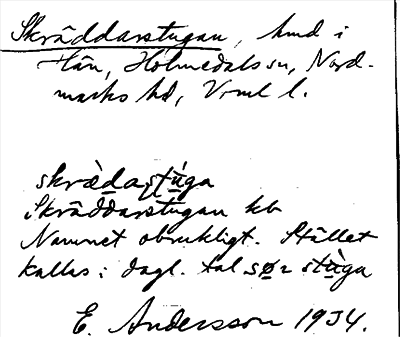 Skräddarstugan, hmd i
Hån, Holmedals sn, Nord-
marks hd, Vrml l.
skræ̀dastu̇̀ga
Skräddarstugan kb
Namnet obrukligt. Stället
kallas i dagl. tal sør stùga
E. Andersson 1934.